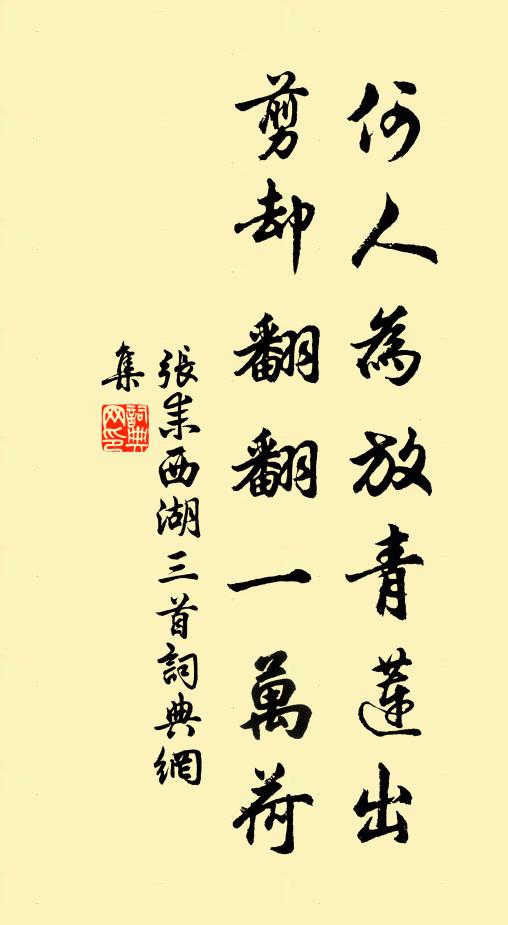 何人為放青蓮出
剪却翻翻一萬荷
張耒西湖三首詞典網
集
詞典網印